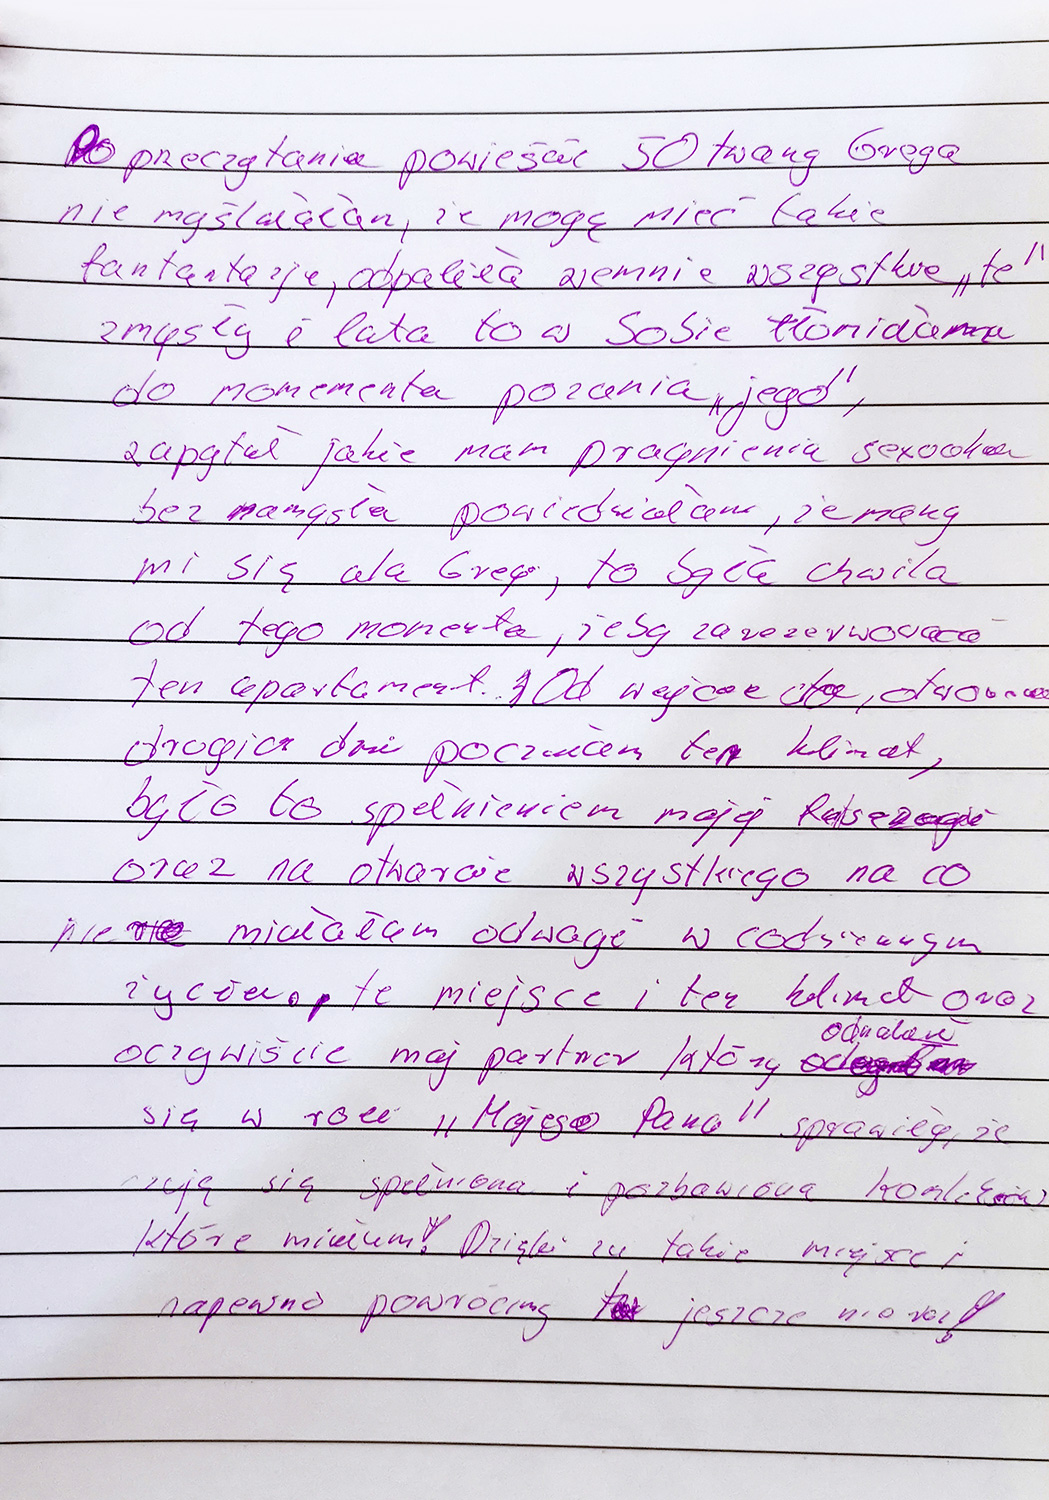 Po przeczytaniu powieści 50 twarzy Greya
nie myślałam, że mogę mieć takie
fantantazje, odpaliła wemnie wszystkie „te”
zmysły i lata to w sobie tłomiłam
do momementu poznania „jego”,
zapytał jakie mam pragnienia sexualne
bez namysłu powiedziałam, że marzy
mi się ala Grey, to była chwila
od tego momentu, żeby zarezerwować
ten apartament. Od wejścia
drogich drzwi poczułam ten klimat,
było to spełnieniem mojej
oraz na otwarcie wszystkiego na co
nie miałałam odwagi w codziennym
życiu, te miejsce i ten klimat oraz
oczywiście mój partner który odnalazł
się w roli „Mojego Pana” sprawiły, że
czuję się spełniona i pozbawiona
które miałam! Dzięki za takie miejsce i
napewno powrócimy tu jeszcze nie raz!